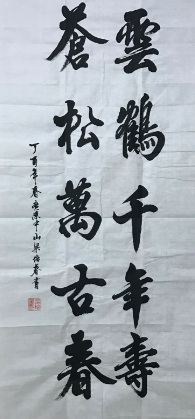 雲鶴千年壽
蒼松萬古春
丁酉年春 廣東中山梁